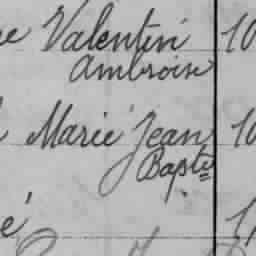 Valentin 10
Ambroise
Marie Jean 10
Bapte
é 1